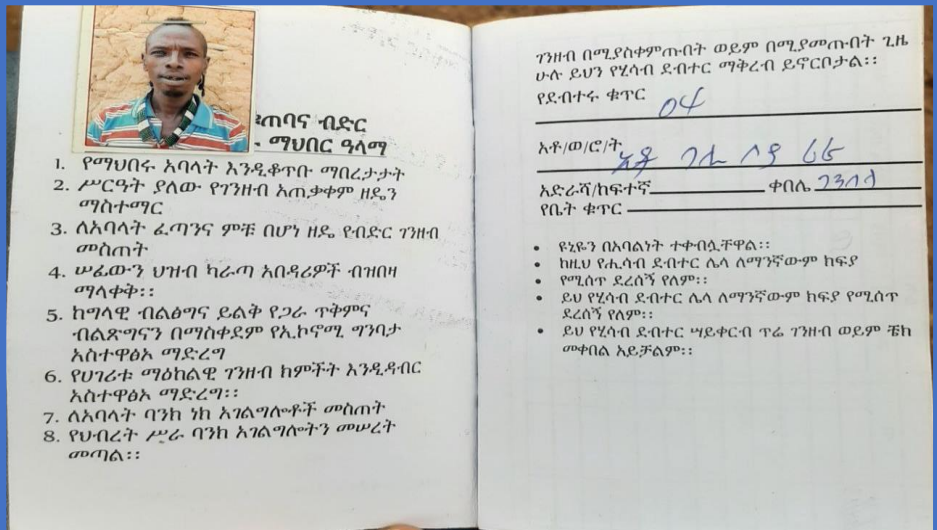 ቁጠባና ብድር
ማህበር ዓላማ
1. የማህበሩ አባላት እንዲቆጥቡ ማበረታታት
2. ሥርዓት ያለው የገንዘብ አጠቃቀም ዘዴን
ማስተማር
3. ለአባላት ፈጣንና ምቹ በሆነ ዘዴ የብድር ገንዘብ
መስጠት
4. ሠፊውን ህዝብ ካራጣ አበዳሪዎች ብዝበዛ
ማላቀቅ፡፡
5. ከግላዊ ብልፅግና ይልቅ የጋራ ጥቅምና
ብልጽግናን በማስቀደም የኢኮኖሚ ግንባታ
አስተዋፅኦ ማድረግ
6. የሀገሪቱ ማዕከልዊ ገንዘብ ክምችት እንዲዳብር
አስተዋፅኦ ማድረግ፡፡
7. ለአባላት ባንክ ነክ አገልግሎቶች መስጠት
8. የህብረት ሥራ ባንክ አገልግሎትን መሠረት
መጣል፡፡
ገንዘብ በሚያስቀምጡበት ወይም በሚያመጡበት ጊዜ
ሁሉ ይህን የሂሳብ ደብተር ማቅረብ ይኖርቦታል፡፡
የደብተሩ ቁጥር 04
አቶ/ወ/ሮ/ት
አድራሻ/ከፍተኛ ቀበሌ
የቤት ቁጥር
• ዩኒዬን በአባልነት ተቀብሏቸዋል፡፡
• ከዚህ የሒሳብ ደብተር ሌላ ለማንኛውም ክፍያ
• የሚሰጥ ደረሰኝ የለም፡፡
• ይህ የሂሳብ ደብተር ሌላ ለማንኛውም ከፍያ የሚሰጥ
ደረሰኝ የለም፡፡
• ይህ የሂሳብ ደብተር ሣይቀርብ ጥሬ ገንዘብ ወይም ቼክ
መቀበል አይቻልም፡፡